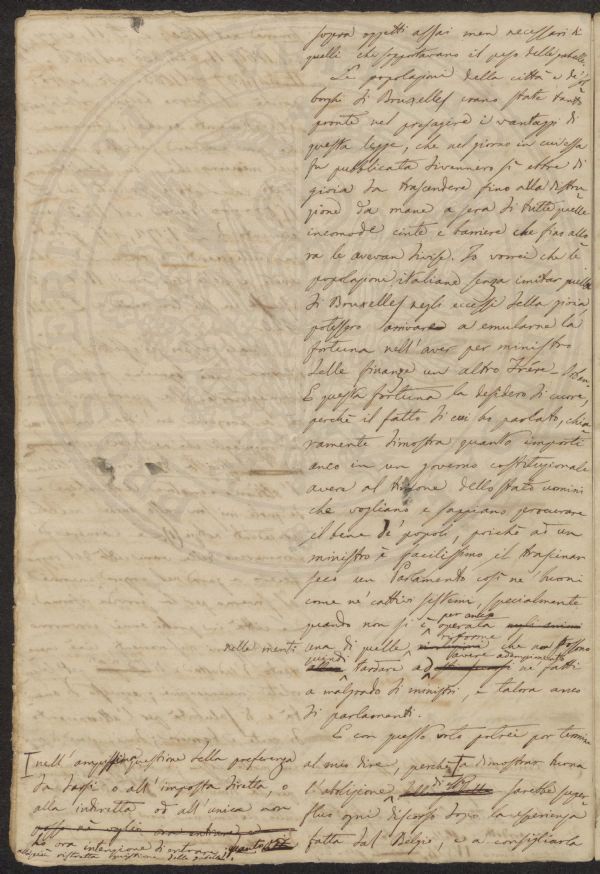 sopra oggetti assai men necessari di
quelli che sopportavano il peso delle gabelle.
Le popolazioni della città e dei
borghi di Bruxelles erano state tanto
pronte nel presagire i vantaggi di
questa legge, che nel giorno in cui essa
fu pubblicata divennero sì ebre di
gioia da trascendere fino alla distru
zione da mane a sera di tutte quelle
incomode cinte e barriere che fino allo
ra le avevan divise. Io vorrei che le
popolazioni italiane senza imitar quella
di Bruxelles negli eccessi della gioia
potessero arrivare a emularne la
fortuna nell'aver per ministro
delle finanze un altro Frère-Orban.
E questa fortuna la desidero di cuore,
perchè il fatto di cui ho parlato, chia
ramente dimostra quanto importi
anco in un governo costituzionale
avere al timone dello stato uomini
che vogliano e sappiano procurare
il bene de' popoli, poichè ad un
ministro è facilissimo il trascinar
seco un Parlamento così ne' buoni
come ne' cattivi sistemi, specialmente
quando non si è operata per anco
una di quelle riforme che non possono
nelle menti
quindi tardare ad avere adempimento ne' fatti
a malgrado di ministri, e talora anco
di parlamenti.
E con questo voto potrei por termine
al mio dire, perchè a dimostrar buona
l'abolizione di sarebbe super
fluo ogni discorso dopo la esperienza
fatta dal Belgio, e a consigliarla
nell'ampissima questione della preferenza
da darsi o all'imposta diretta, o
alla indiretta od all'unica non
posso nè voglio ora entrare, e
ho ora intenzione di entrare, quanto
alla più ristretta questione delle gabelle.